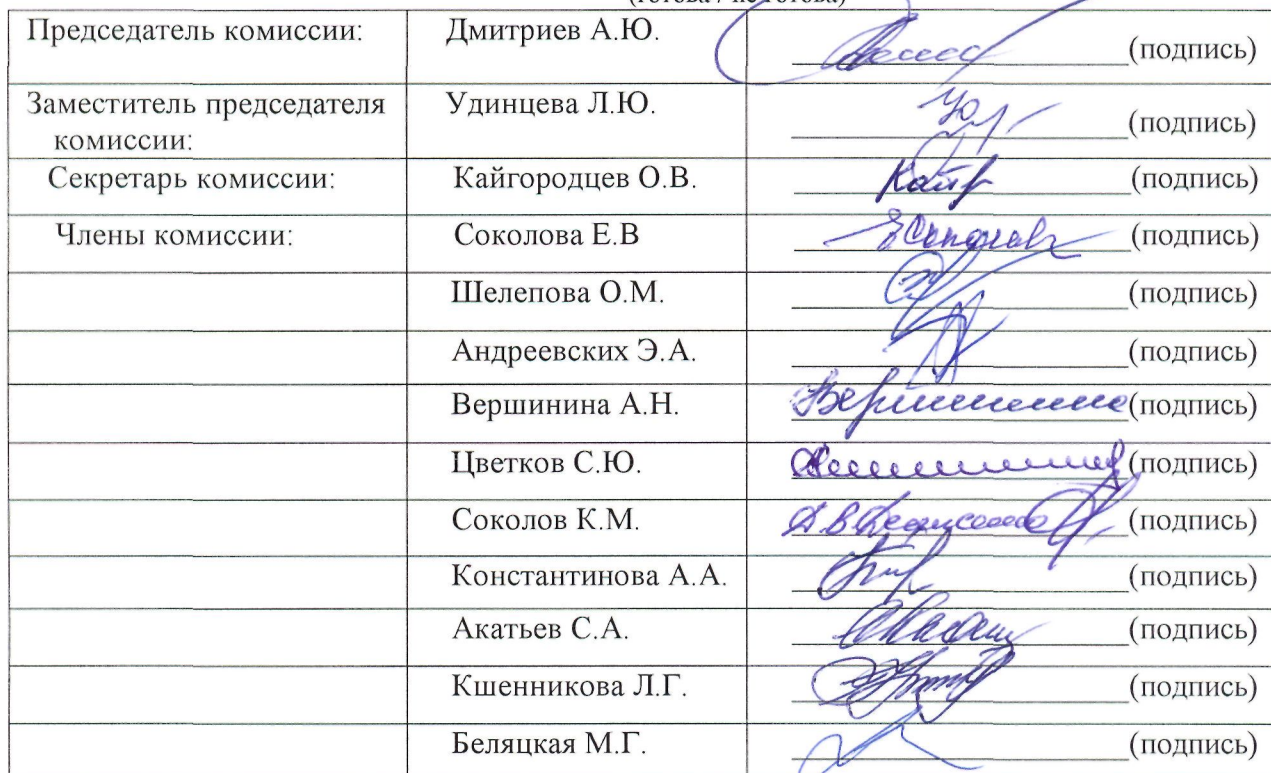 (готова / не готова)
Председатель комиссии: Дмитриев А.Ю. (подпись)
Заместитель председателя комиссии: Удинцева Л.Ю. (подпись)
Секретарь комиссии: Кайгородцев О.В. (подпись)
Члены комиссии: Соколова Е.В (подпись)
Шелепова О.М. (подпись)
Андреевских Э.А. (подпись)
Вершинина А.Н. (подпись)
Цветков С.Ю. (подпись)
Соколов К.М. (подпись)
Константинова А.А. (подпись)
Акатьев С.А. (подпись)
Кшенникова Л.Г. (подпись)
Беляцкая М.Г. (подпись)